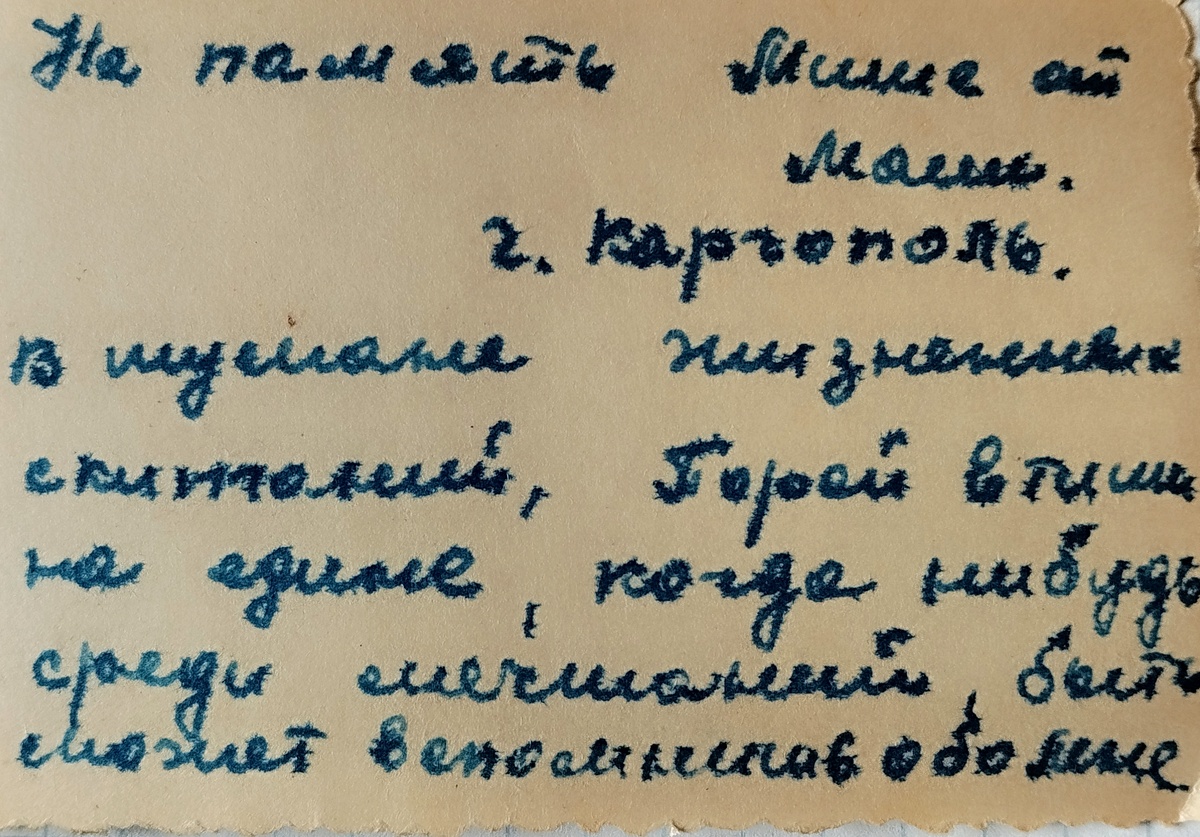 На память Мише от
Маши.
г. Каргополь.
в тумане жизненных
скитаний, Порой в тиши
на едине, когда нибудь
среди мечтаний, быть
может вспомнишь обо мне